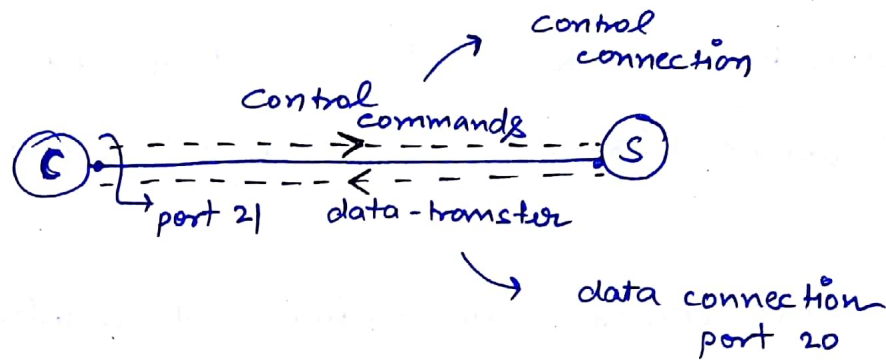 control
connection
control
commands
C
S
port 21
data-transfer
data connection
port 20